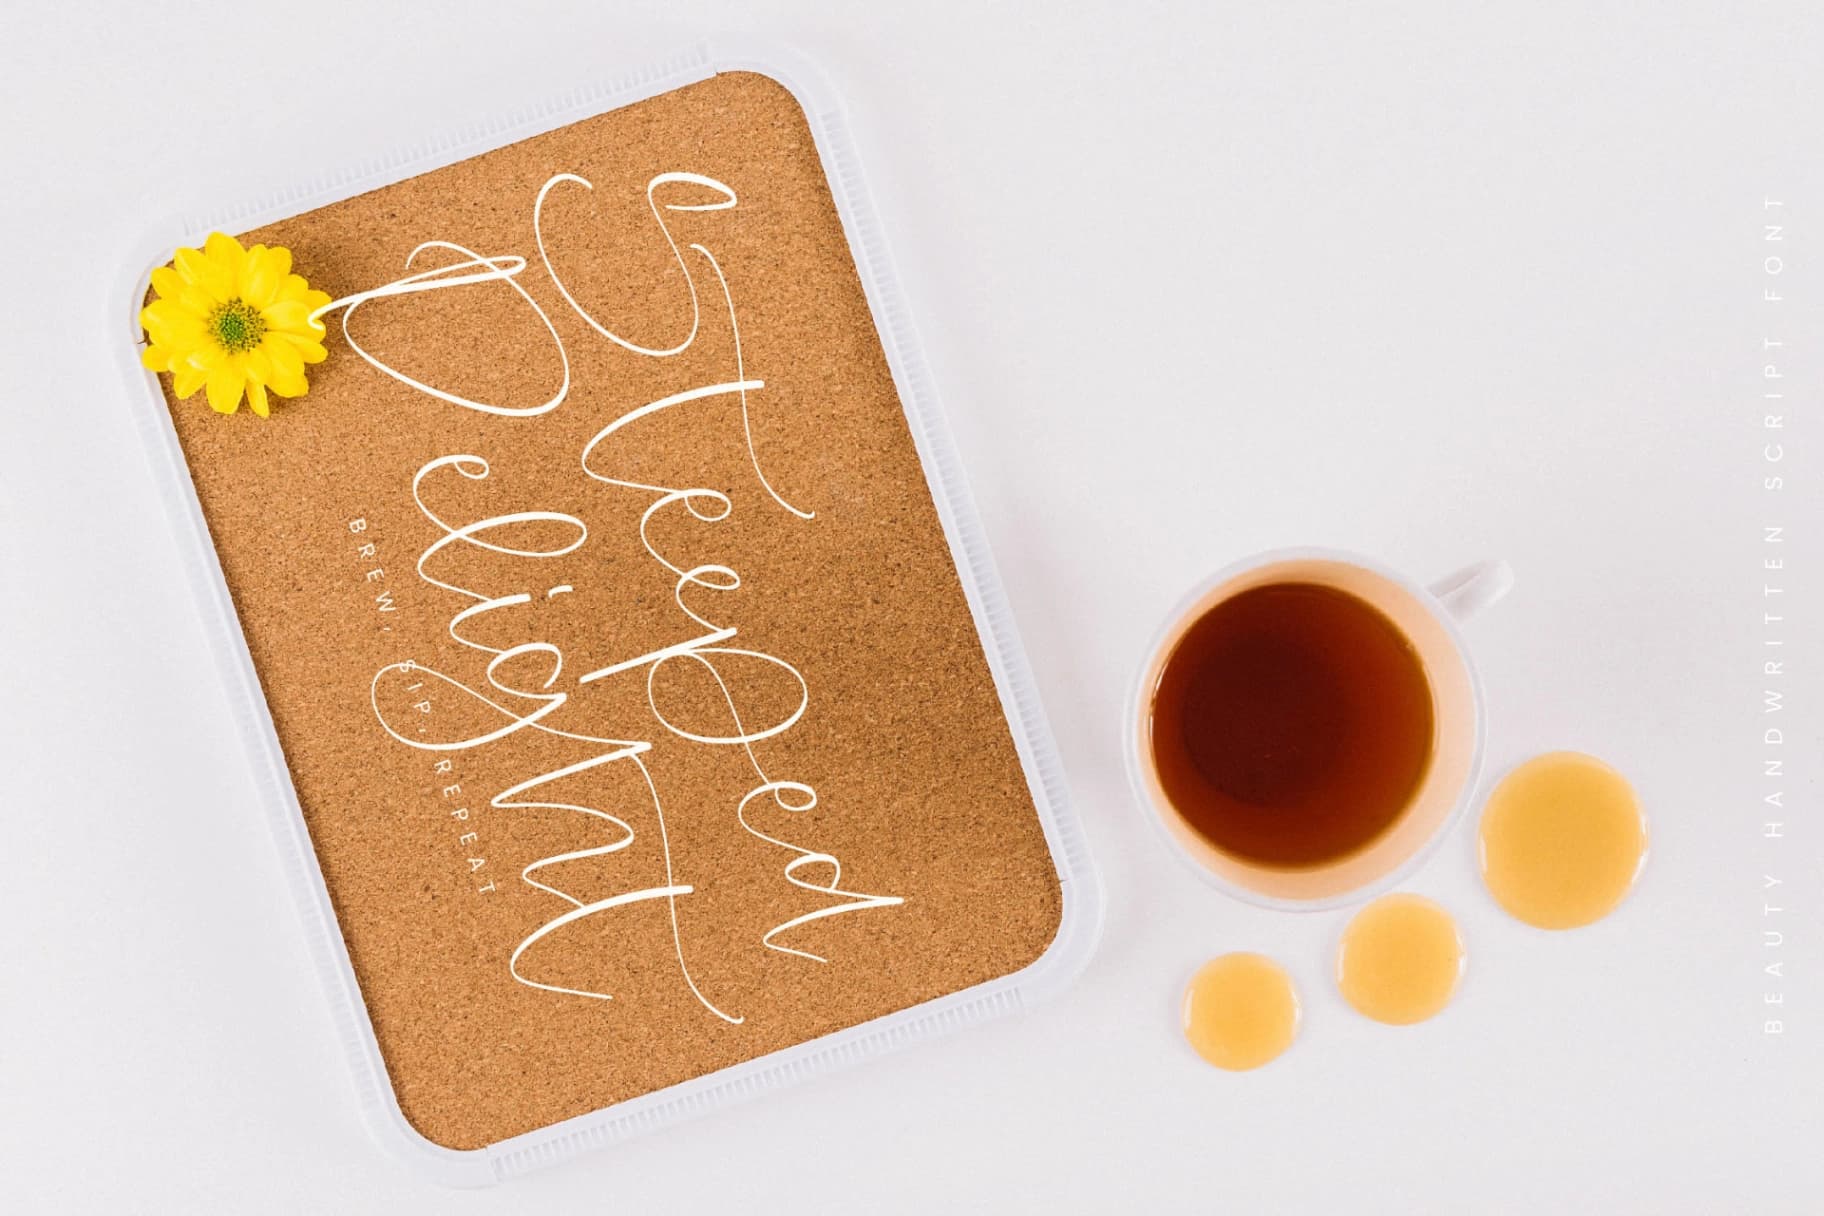 Steeped
Delight
BREW, SIP, REPEAT
BEAUTY HANDWRITTEN SCRIPT FONT